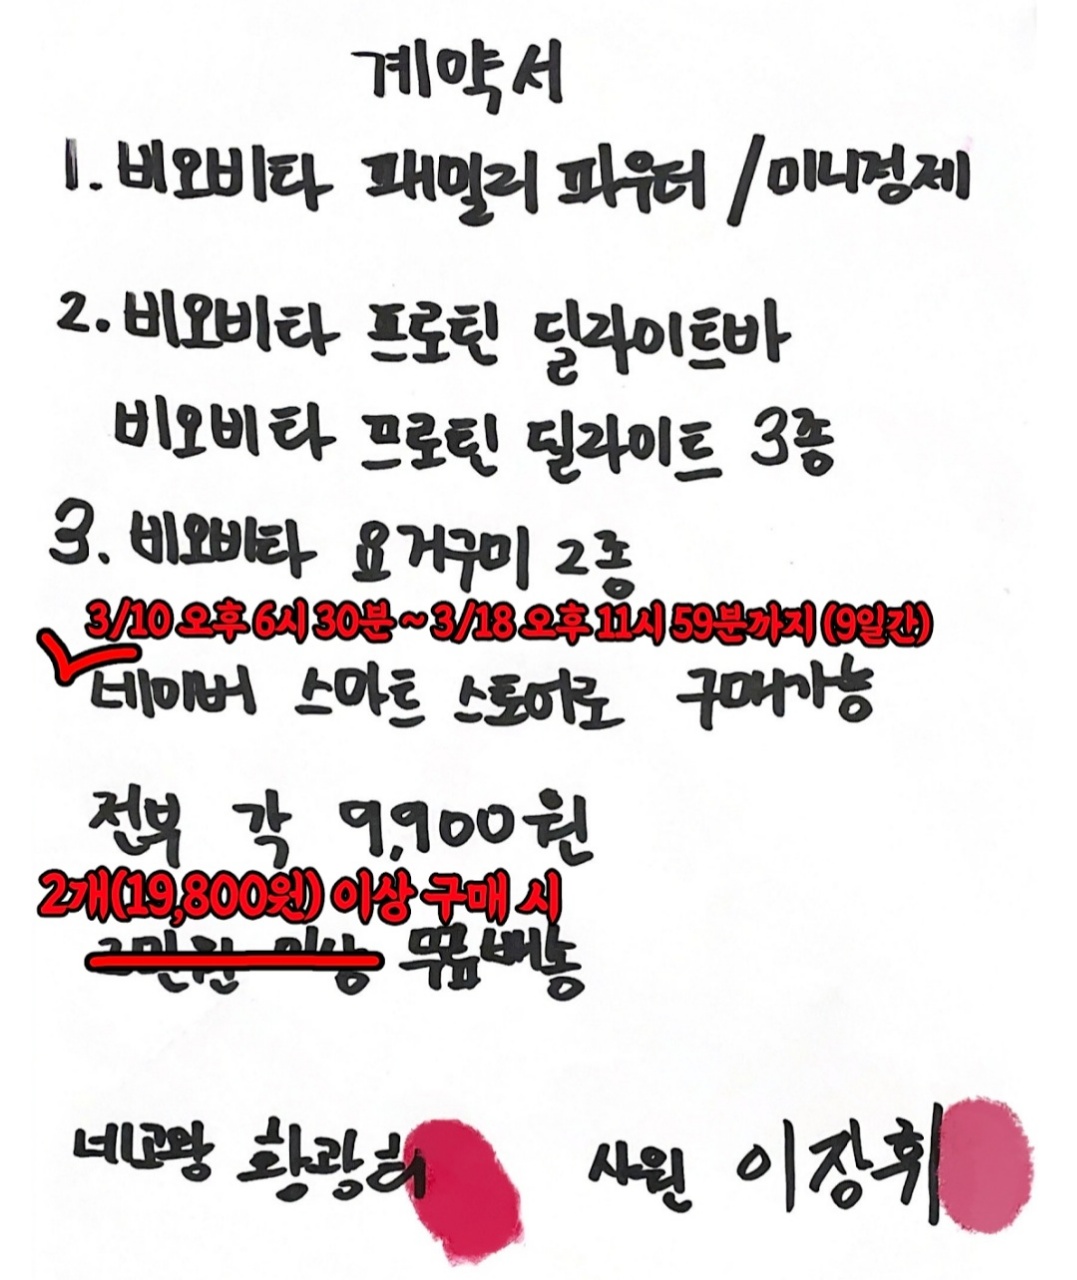 계약서
1. 비오비타 패밀리 파우더 / 미니정제
2. 비오비타 프로틴 딜라이트바
비오비타 프로틴 딜라이트 3종
3. 비오비타 요거구미 2종
3/10 오후 6시 30분 ~ 3/18 오후 11시 59분까지 (9일간)
네이버 스마트 스토어로 구매가능
전부 각 9,900원
2개(19,800원) 이상 구매 시
무료배송
네고왕 황광희 사원 이장휘